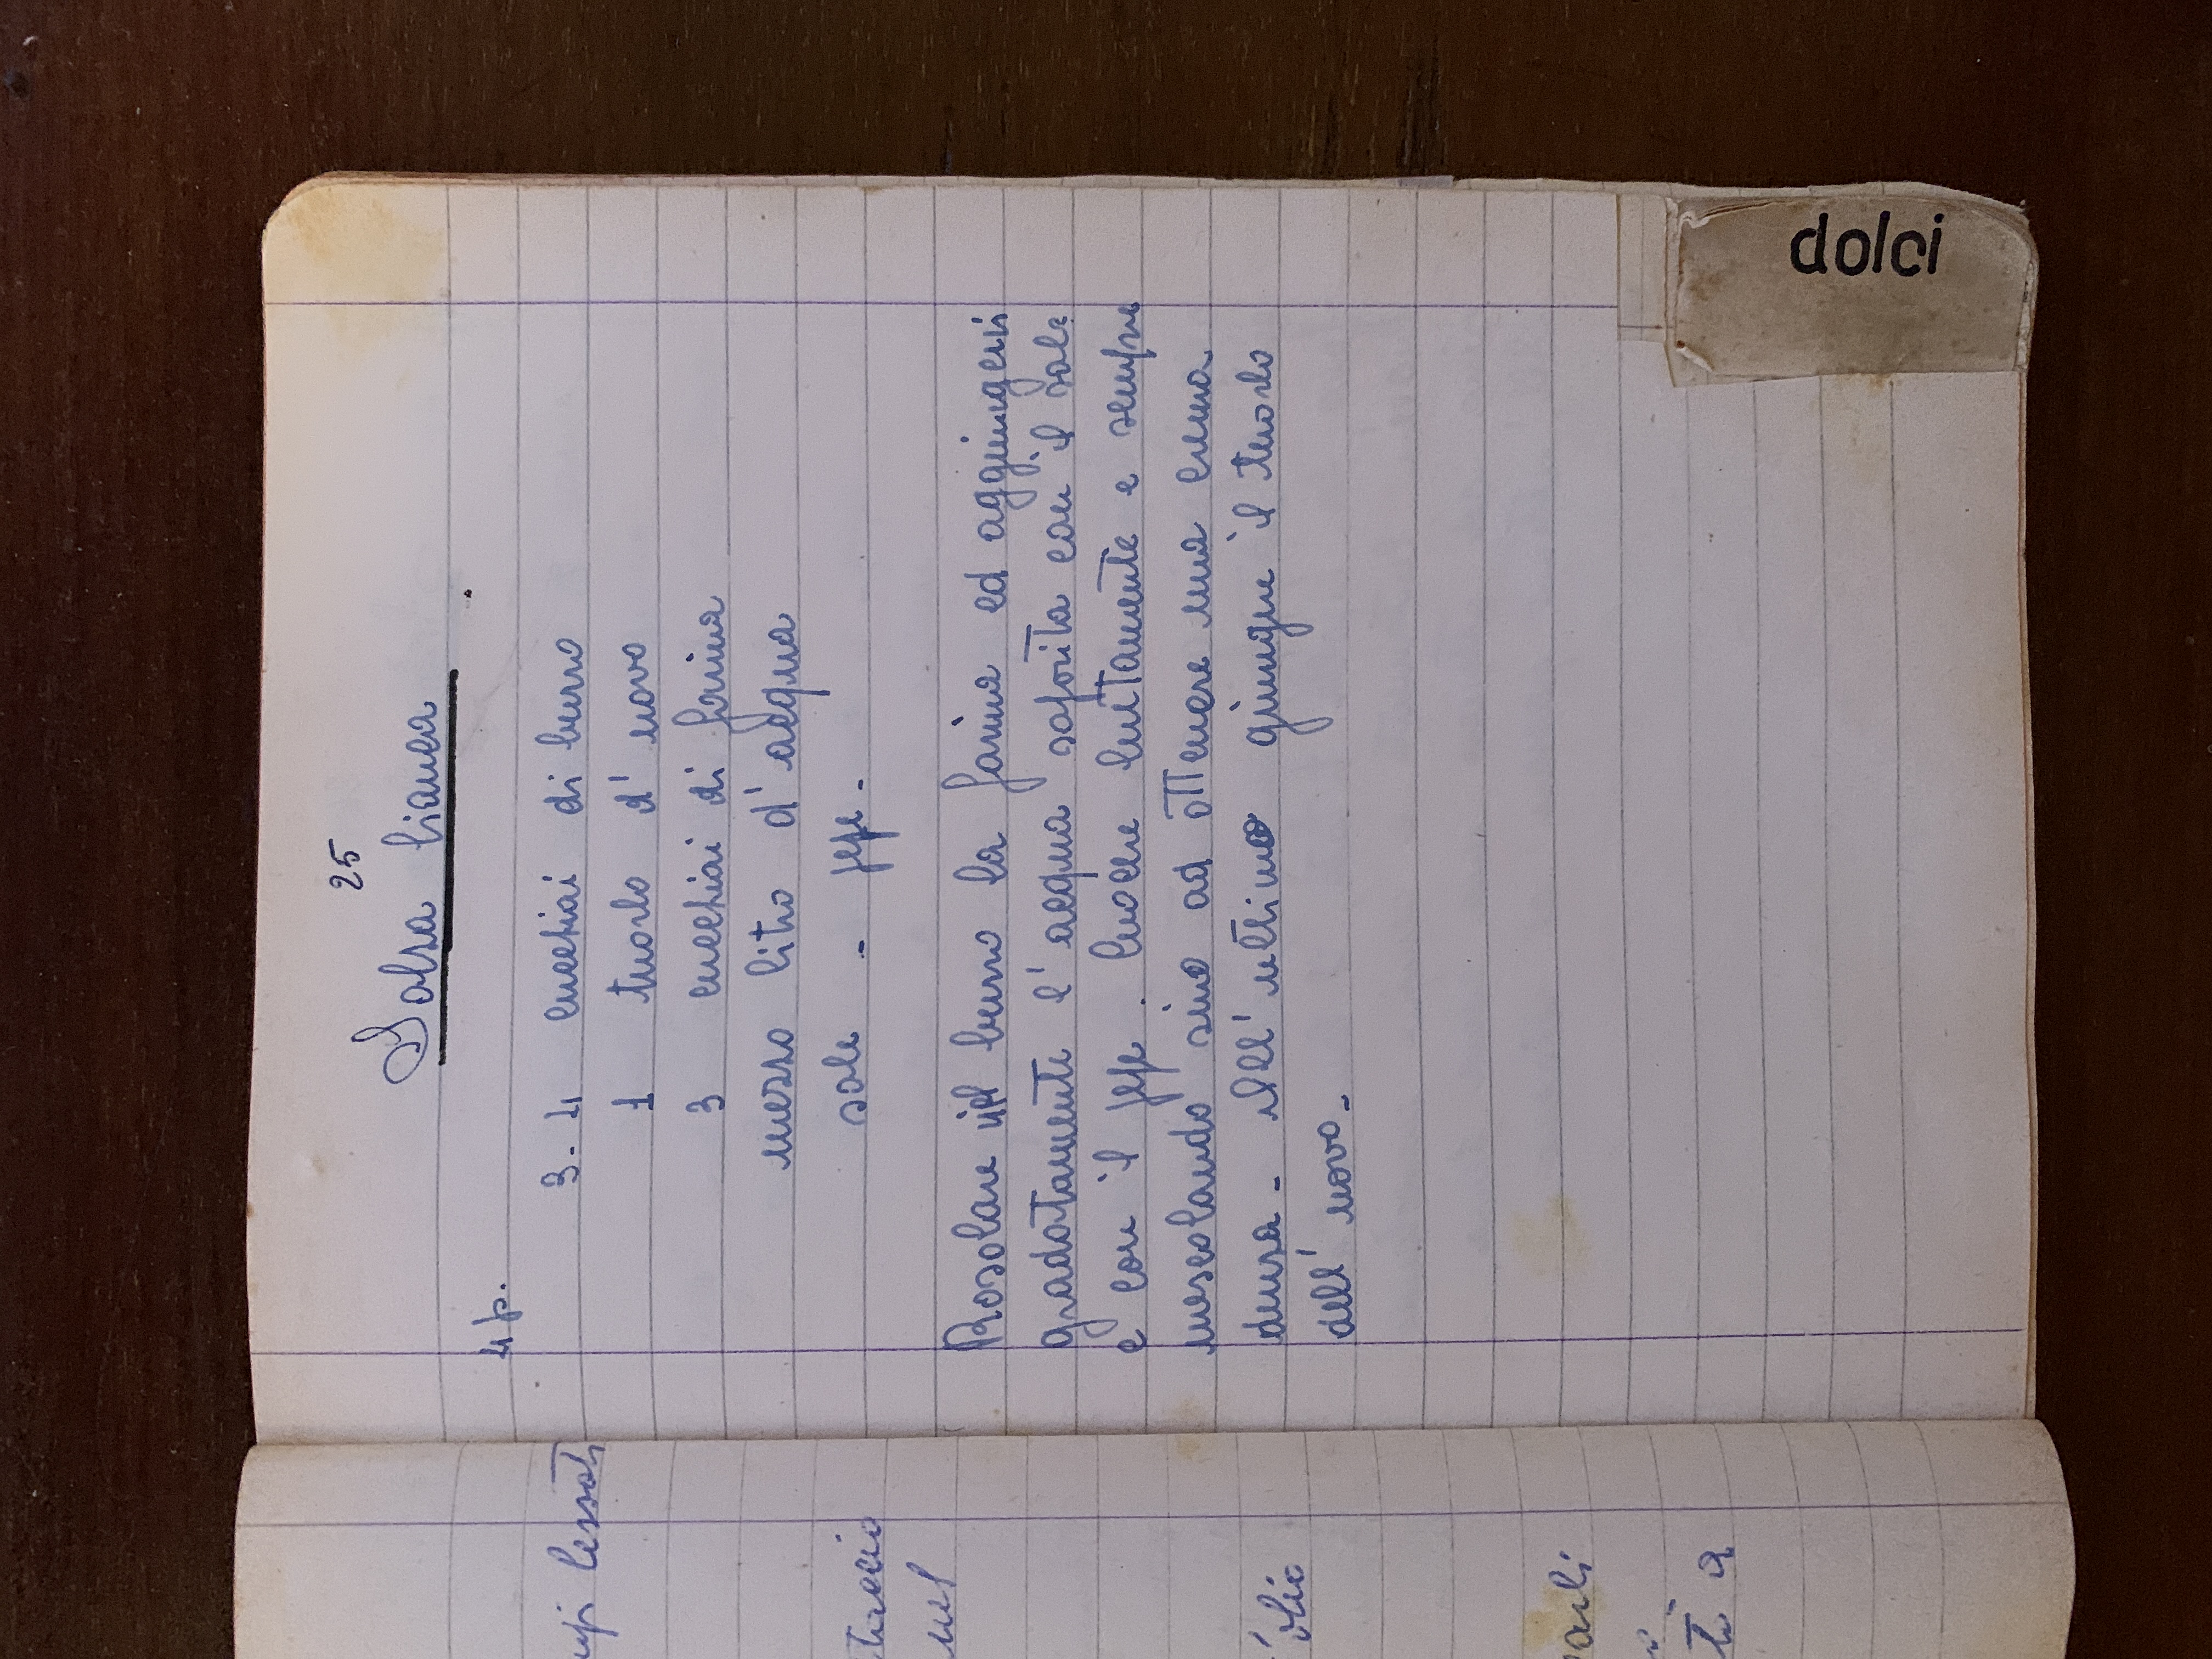 25
Salsa bianca
4 p.
3-4 cucchiai di burro
1 tuorlo d'uovo
3 cucchiai di farina
mezzo litro d'acqua
sale - pepe -
Rosolare nel burro la farina ed aggiungervi
gradatamente l'acqua saporita con il sale
e con il pepe. Cuocere lentamente e sempre
mescolando sino ad ottenere una crema
densa - All'ultimo giungere il tuorlo
dell'uovo -
lessati
nel
olio
a
dolci